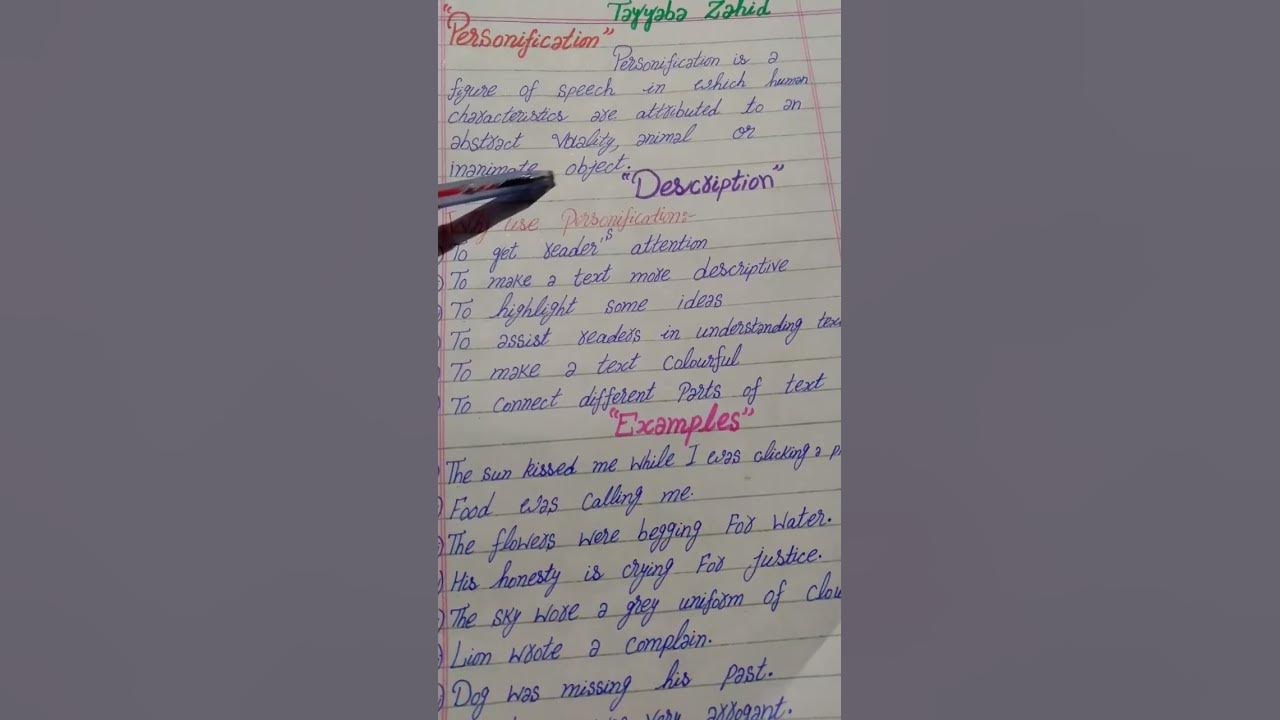 Tayyaba Zahid
"Personification"
Personification is a
figure of speech in which human
characteristics are attributed to an
abstract quality, animal or
inanimate object.
"Description"
Why use Personification:-
To get reader's attention
To make a text more descriptive
To highlight some ideas
To assist readers in understanding
To make a text colourful
To connect different Parts of text
"Examples"
The sun kissed me while I was clicking a
Food was calling me.
The flowers were begging For water.
His honesty is crying For justice.
The sky wore a grey uniform of
Lion wrote a complain.
Dog was missing his past.
very arrogant.